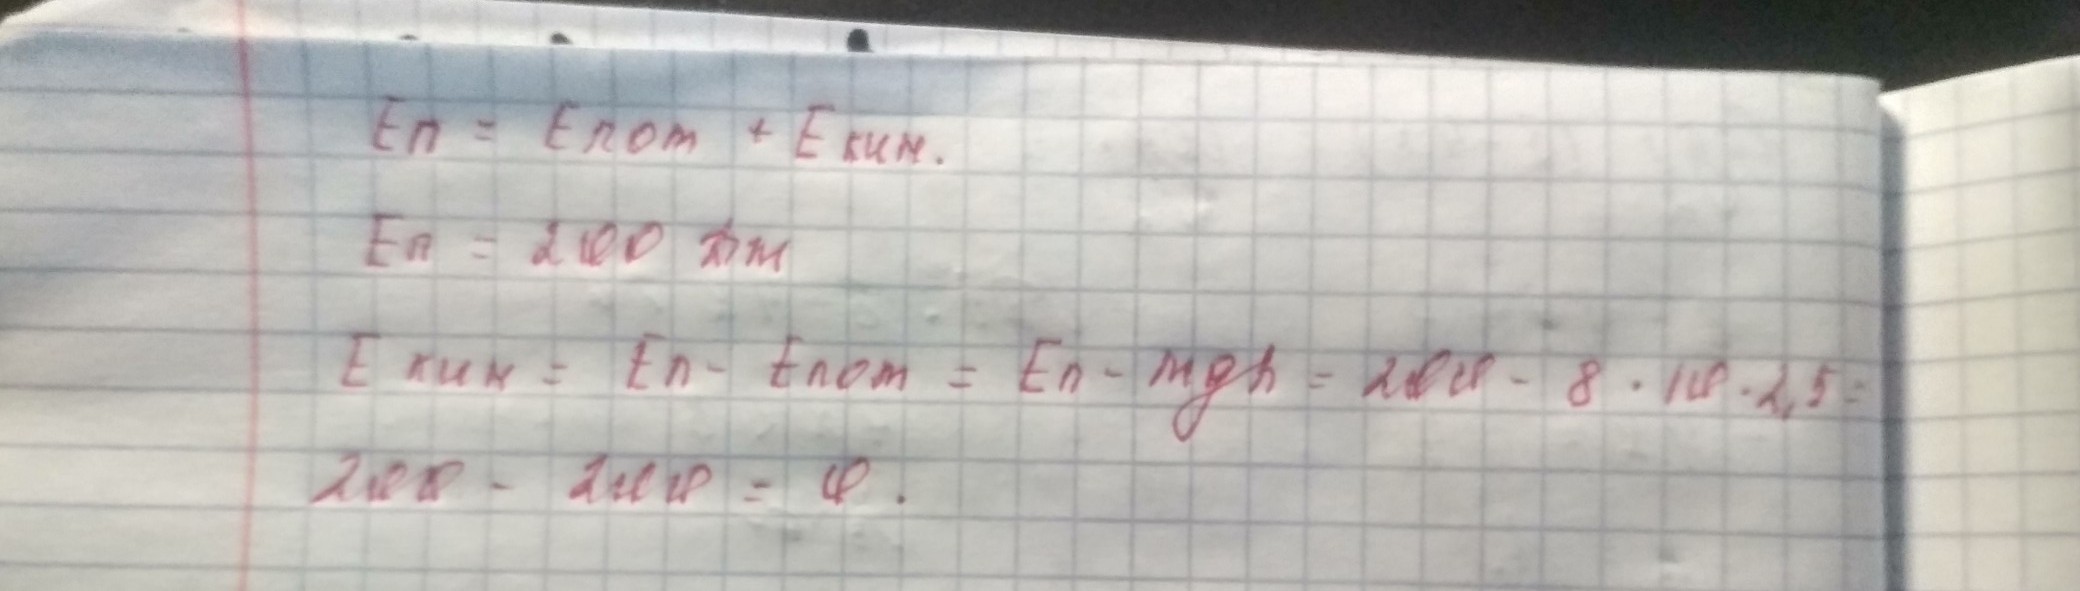 Eп = Eпот + Eкин.
Eп = 200 Дж
Eкин = Eп - Eпот = Eп - mgh = 200 - 8 · 10 · 2,5 =
200 - 200 = 0.